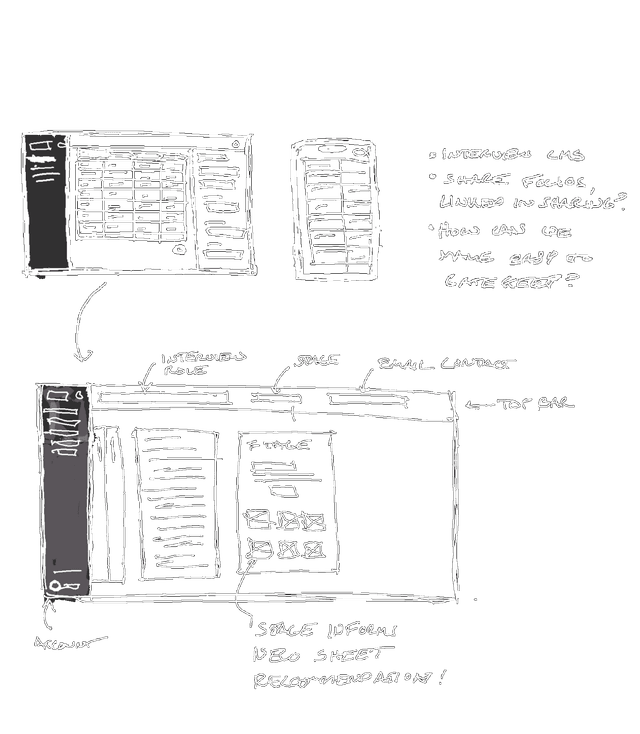 • INTERVIEW CMS
• SHARE FOLIOS,
LINKED IN SHARING?
• HOW CAN WE
MAKE EASY TO
GATE KEEP?
INTERVIEW
ROLE
STAGE
EMAIL CONTACT
TOP BAR
STAGE
ACCOUNT
STAGE INFORMS
NEO SHEET
RECOMMENDATION!